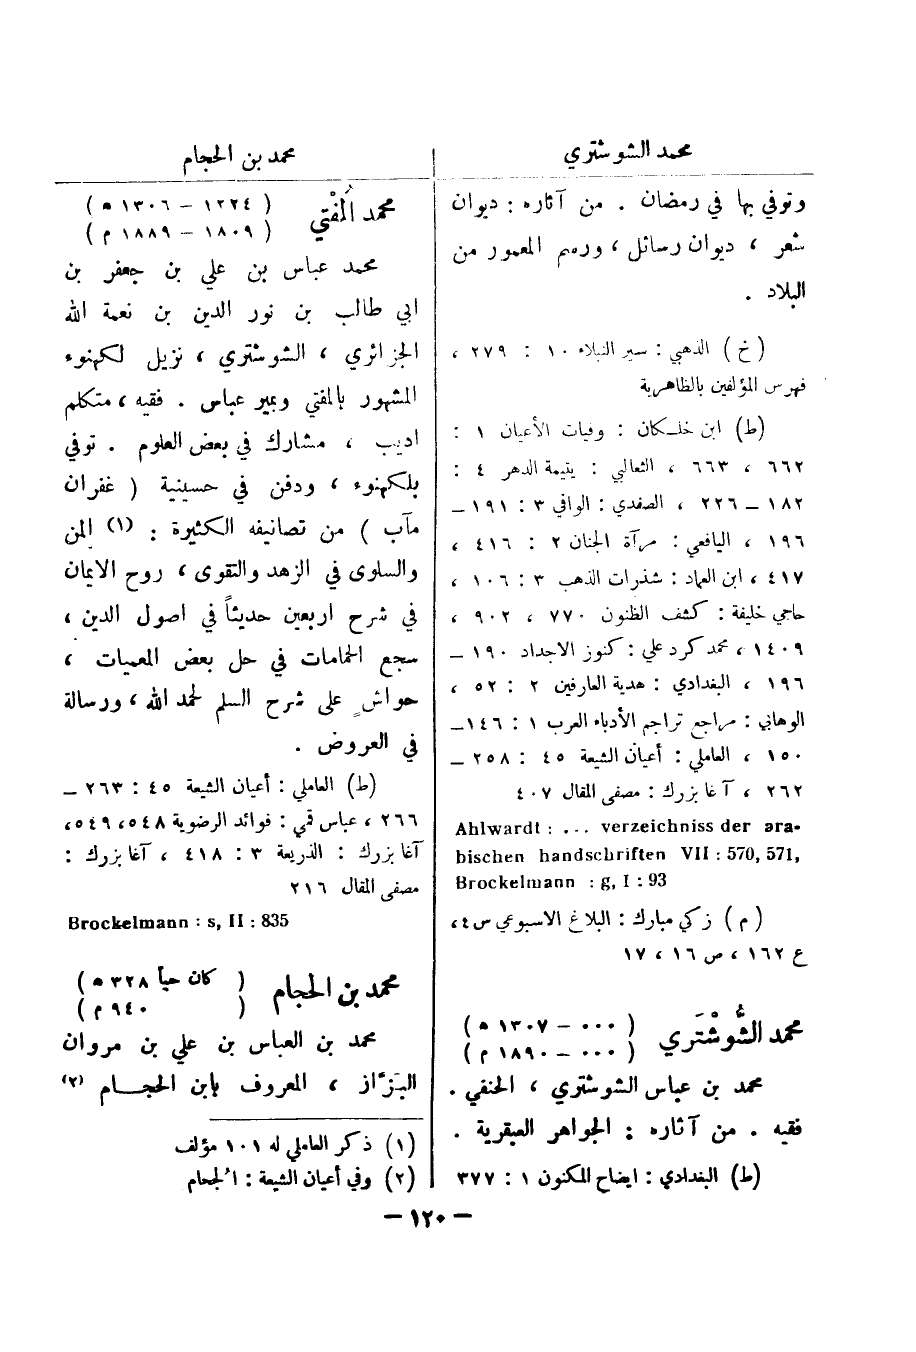 محمد الشوشتري
محمد بن الحجام
وتوفي بها في رمضان . من آثاره : ديوان
شعر ، ديوان رسائل ، ورسم المعمور من
البلاد .
( خ ) الذهبي : سير النبلاء ١٠ : ٢٧٩ ،
فهرس المؤلفين بالظاهرية
(ط) ابن خلكان : وفيات الأعيان ١ :
٦٦٢ ، ٦٦٣ ، الثعالبي : يتيمة الدهر ٤ :
١٨٢ ــ ٢٢٦ ، الصفدي : الوافي ٣ : ١٩١ ــ
١٩٦ ، اليافعي : مرآة الجنان ٢ : ٤١٦ ،
٤١٧ ، ابن العماد : شذرات الذهب ٣ : ١٠٦ ،
حاجي خليفة : كشف الظنون ٧٧٠ ، ٩٠٢ ،
١٤٠٩ ، محمد كرد علي : كنوز الاجداد ١٩٠ ــ
١٩٦ ، البغدادي : هدية العارفين ٢ : ٥٢ ،
الوهابي : مراجع تراجم الأدباء العرب ١ : ١٤٦ــ
١٥٠ ، العاملي : أعيان الشيعة ٤٥ : ٢٥٨ ــ
٢٦٢ ، آغا بزرك : مصفى المقال ٤٠٧
Ahlwardt : ... verzeichniss der ara-
bischen handschriften VII : 570, 571,
Brockelmann : g, I : 93
( م ) زكي مبارك : البلاغ الاسبوعي س ٤ ،
ع ١٦٢ ، ص ١٦ ، ١٧
محمد الشُّوشْتَري ( ٠٠٠ – ١٣٠٧ ھ )
( ٠٠٠ – ١٨٩٠ م )
محمد بن عباس الشوشتري ، الحنفي .
فقيه . من آثاره : الجواهر العبقرية .
(ط) البغدادي : ايضاح المكنون ١ : ٣٧٧
محمد المُفْتي ( ١٢٢٤ – ١٣٠٦ ھ )
( ١٨٠٩ – ١٨٨٩ م )
محمد عباس بن علي بن جعفر بن
ابي طالب بن نور الدين بن نعمة الله
الجزائري ، الشوشتري ، نزيل لكهنوء
المشهور بالمفتي وبمير عباس . فقيه ، متكلم
اديب ، مشارك في بعض العلوم . توفي
بلكهنوء ، ودفن في حسينية ( غفران
مآب ) من تصانيفه الكثيرة : (١) المن
والسلوى في الزهد والتقوى ، روح الايمان
في شرح اربعين حديثاً في اصول الدين ،
سجع الحمامات في حل بعض المعميات ،
حواشٍ على شرح السلم لحمد الله ، ورسالة
في العروض .
(ط) العاملي : أعيان الشيعة ٤٥ : ٢٦٣ ــ
٢٦٦ ، عباس قمي : فوائد الرضوية ٥٤٨ ، ٥٤٩ ،
آغا بزرك : الذريعة ٣ : ٤١٨ ، آغا بزرك :
مصفى المقال ٢١٦
Brockelmann : s, II : 835
محمد بن الحجام ( كان حياً ٣٢٨ ھ )
( ٩٤٠ م )
محمد بن العباس بن علي بن مروان
البزّاز ، المعروف بابن الحجام (٢)
(١) ذكر العاملي له ١٠١ مؤلف
(٢) وفي أعيان الشيعة : الجحام
– ١٢٠ –